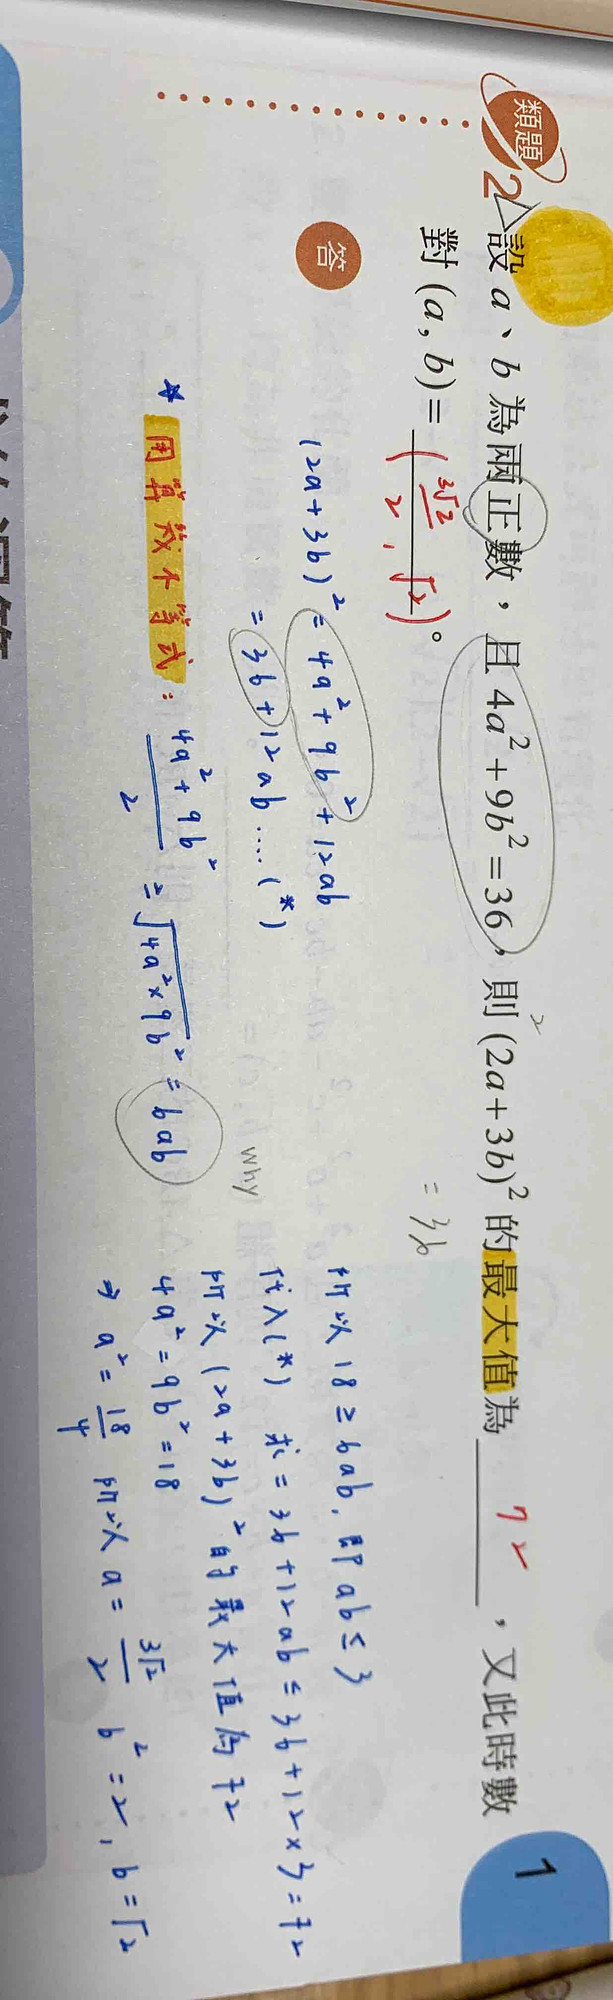 類題
2 設 a、b 為兩正數，且 4a²+9b²=36，則 (2a+3b)² 的最大值為 72，又此時數
對 (a, b) = (3√2/2, √2)。
= 36
答
(2a+3b)² = 4a²+9b²+12ab
= 36+12ab....(*)
☆ 用算幾不等式: (4a²+9b²)/2 ≥ √(4a²×9b²) = 6ab
why
所以 18 ≥ 6ab, 即 ab ≤ 3
代入(*) 求 = 36+12ab ≤ 36+12×3 = 72
所以 (2a+3b)² 的最大值為 72
4a² = 9b² = 18
⇒ a² = 18/4 所以 a = 3√2/2 b² = 2, b = √2
1